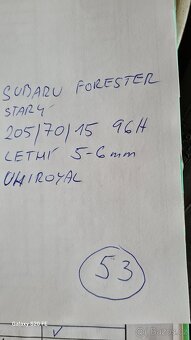 SUBARU FORESTER
STARÝ
205/70/15 96H
LETNÍ 5-6mm
UNIROYAL
53
Galaxy S20 FE